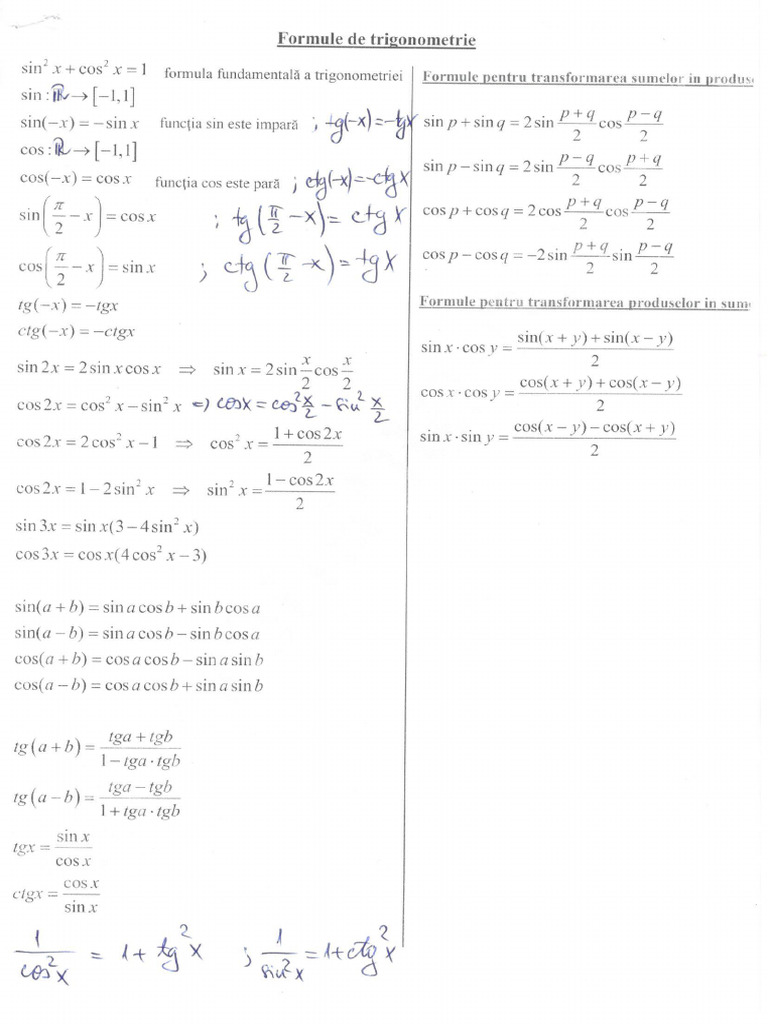 Formule de trigonometrie
sin² x + cos² x = 1 formula fundamentală a trigonometriei
sin : ℝ → [−1,1]
sin(−x) = −sin x funcția sin este impară ; tg(−x) = −tgx
cos : ℝ → [−1,1]
cos(−x) = cos x funcția cos este pară ; ctg(−x) = −ctgx
sin(π/2 − x) = cos x ; tg(π/2 − x) = ctgx
cos(π/2 − x) = sin x ; ctg(π/2 − x) = tgx
tg(−x) = −tgx
ctg(−x) = −ctgx
sin 2x = 2 sin x cos x ⇒ sin x = 2 sin x/2 cos x/2
cos 2x = cos² x − sin² x ⇒ cosx = cos² x/2 − sin² x/2
cos 2x = 2 cos² x − 1 ⇒ cos² x = (1 + cos 2x)/2
cos 2x = 1 − 2 sin² x ⇒ sin² x = (1 − cos 2x)/2
sin 3x = sin x(3 − 4 sin² x)
cos 3x = cos x(4 cos² x − 3)
sin(a + b) = sin a cos b + sin b cos a
sin(a − b) = sin a cos b − sin b cos a
cos(a + b) = cos a cos b − sin a sin b
cos(a − b) = cos a cos b + sin a sin b
tg(a + b) = (tga + tgb)/(1 − tga · tgb)
tg(a − b) = (tga − tgb)/(1 + tga · tgb)
tgx = sin x/cos x
ctgx = cos x/sin x
1/cos²x = 1 + tg²x ; 1/sin²x = 1 + ctg²x
Formule pentru transformarea sumelor in produse
sin p + sin q = 2 sin (p + q)/2 cos (p − q)/2
sin p − sin q = 2 sin (p − q)/2 cos (p + q)/2
cos p + cos q = 2 cos (p + q)/2 cos (p − q)/2
cos p − cos q = −2 sin (p + q)/2 · sin (p − q)/2
Formule pentru transformarea produselor in sume
sin x · cos y = (sin(x + y) + sin(x − y))/2
cos x · cos y = (cos(x + y) + cos(x − y))/2
sin x · sin y = (cos(x − y) − cos(x + y))/2